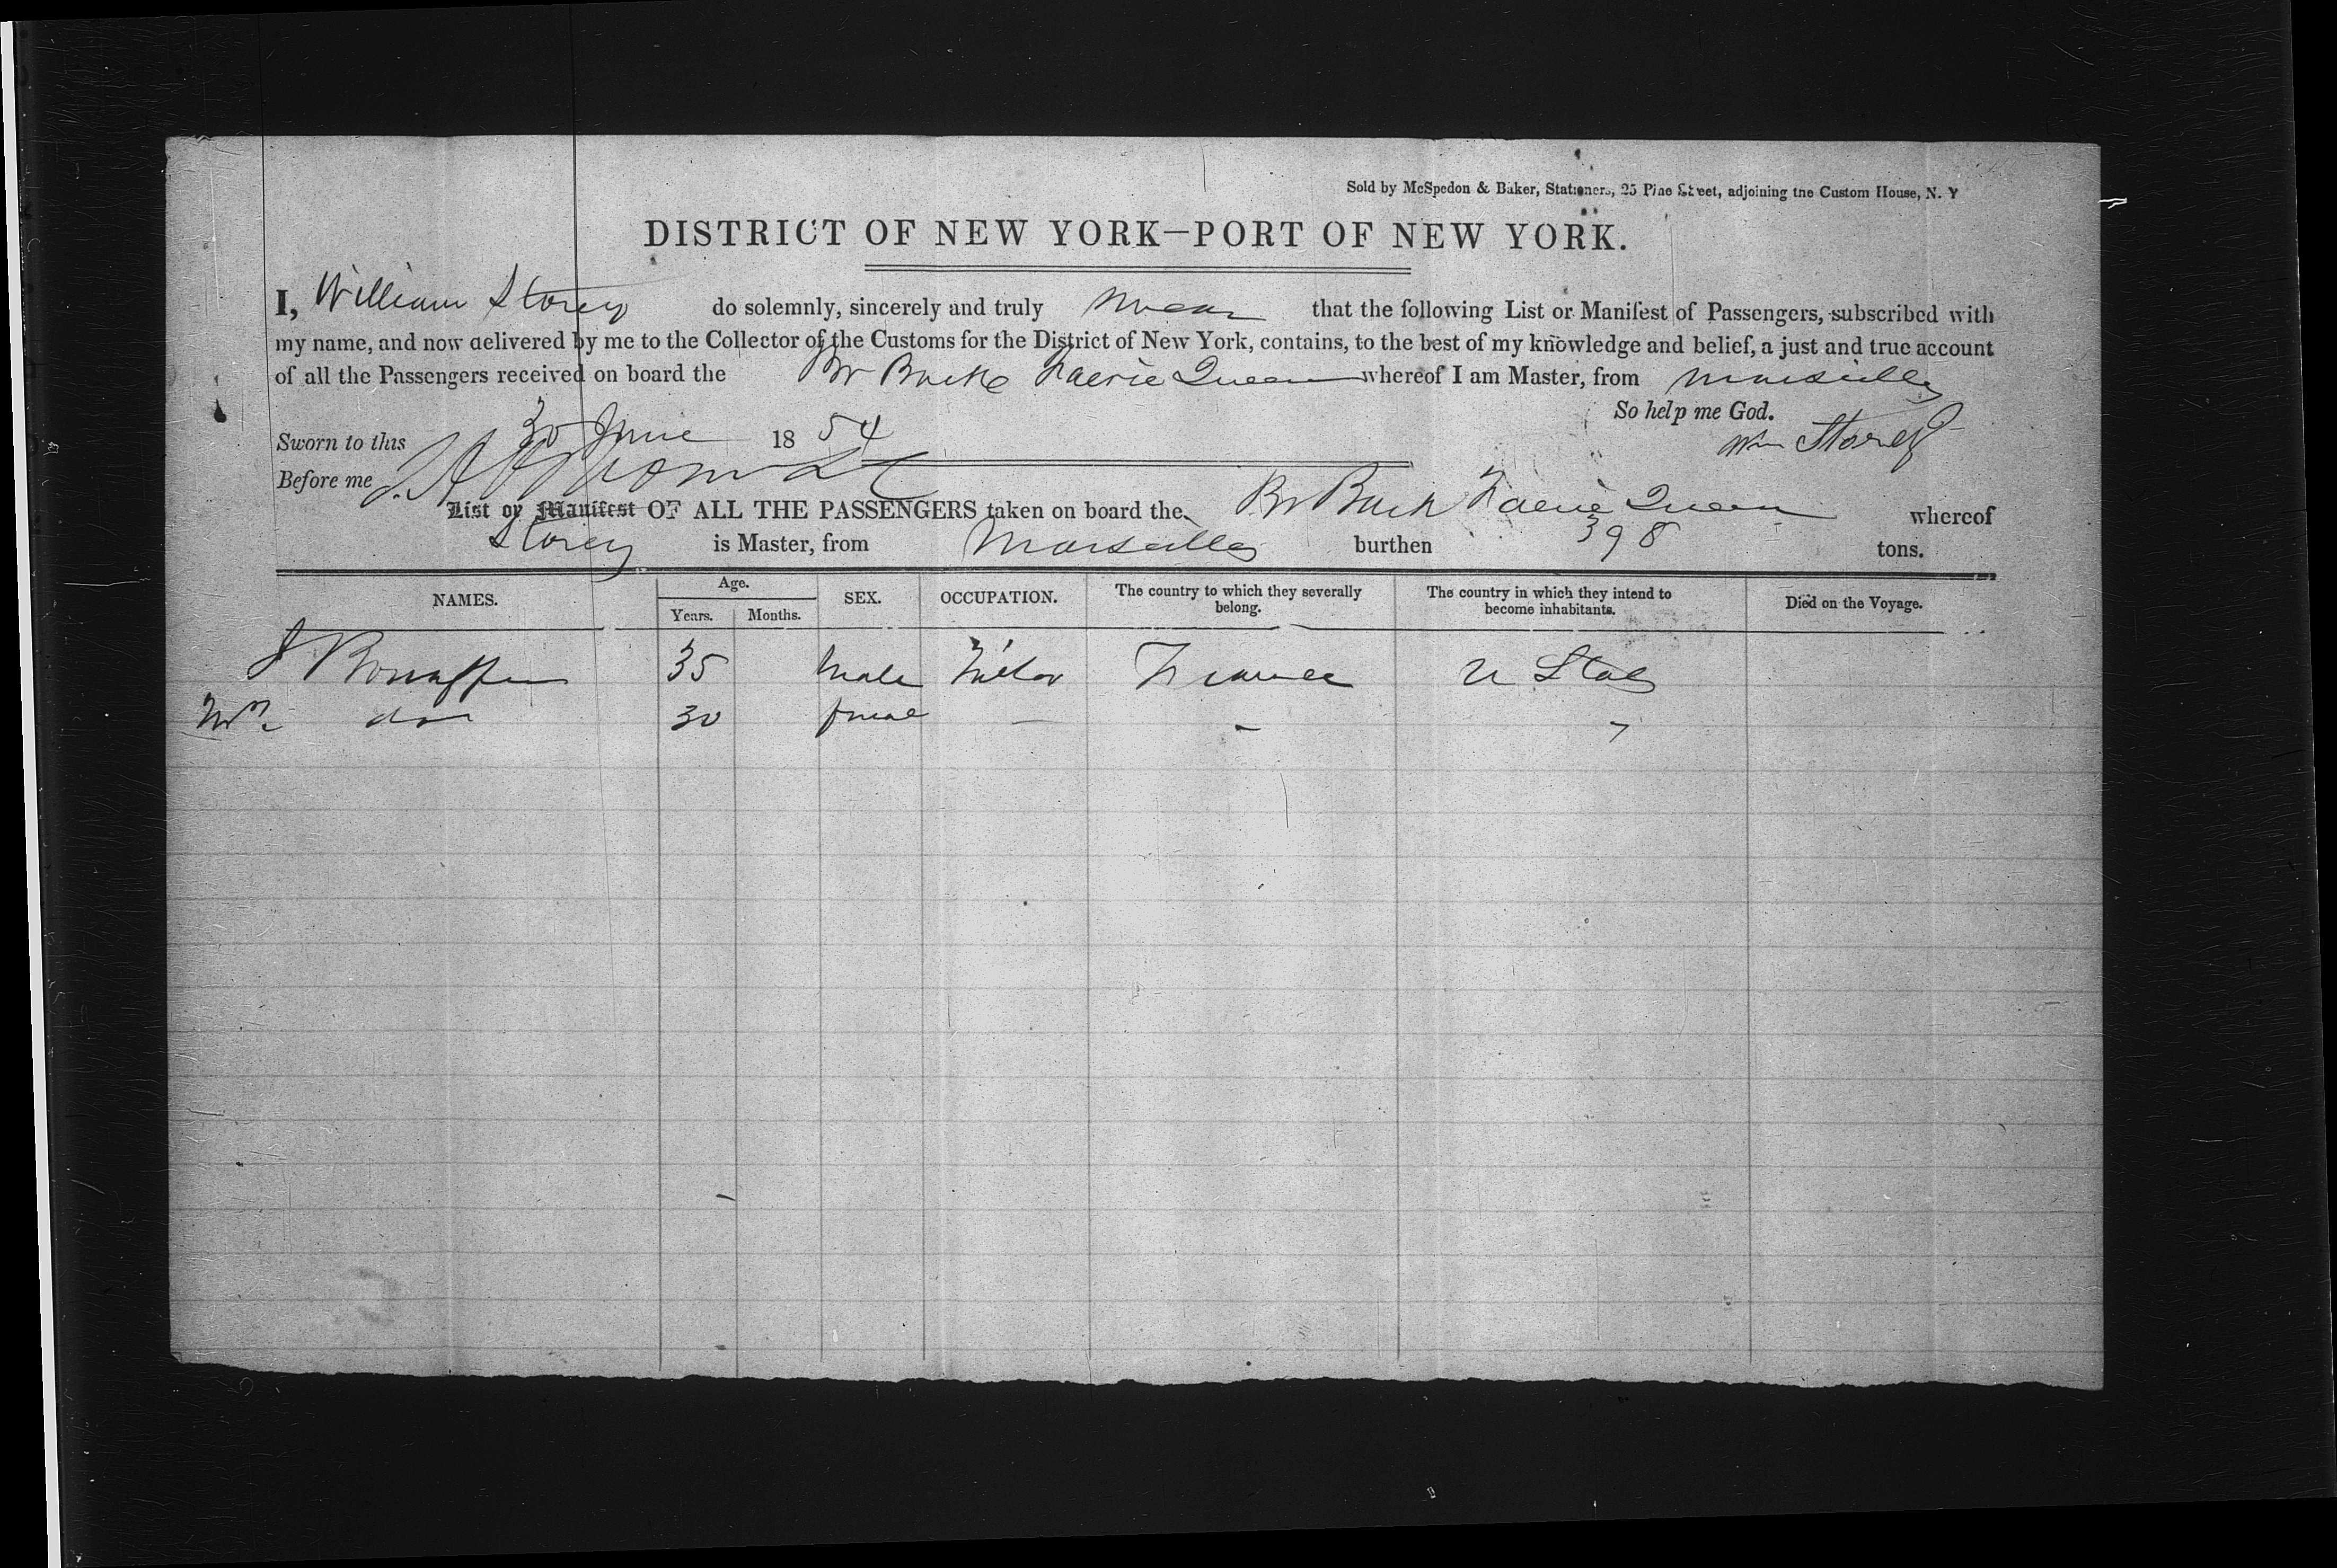 Sold by McSpedon & Baker, Stationers, 25 Pine Street, adjoining the Custom House, N. Y
DISTRICT OF NEW YORK—PORT OF NEW YORK.
I, William Storey do solemnly, sincerely and truly swear that the following List or Manifest of Passengers, subscribed with
my name, and now delivered by me to the Collector of the Customs for the District of New York, contains, to the best of my knowledge and belief, a just and true account
of all the Passengers received on board the Br Barke Faerie Queen whereof I am Master, from Marseilles
So help me God.
Sworn to this 30 June 1854 Wm Storey
Before me
List or Manifest OF ALL THE PASSENGERS taken on board the Br Bark Faerie Queen whereof
Storey is Master, from Marseilles burthen 398 tons.
NAMES. Age. Years. Months. SEX. OCCUPATION. The country to which they severally belong. The country in which they intend to become inhabitants. Died on the Voyage.
J 35 Male France U Stats
Mrs do 30 - -